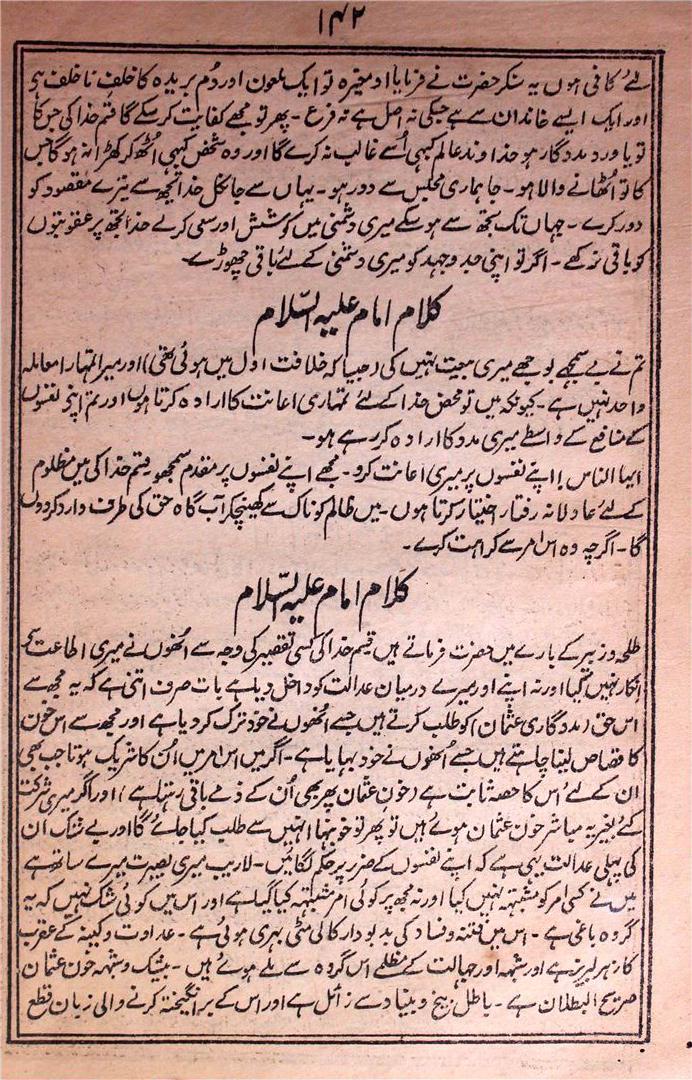 ۱۴۲
لئے کافی ہوں یہ سنکر حضرت نے فرمایا او مغیرہ تو ایک ملعون اور دُم بریدہ کا خلف ناخلف ہے
اور ایک ایسے خاندان سے ہے جسکی نہ اصل ہے نہ فرع - پھر تو مجھے کفایت کر سکے گا قسم خدا کی جس کا
تو یاور و مددگار ہو خداوند عالم کبھی اُسے غالب نہ کرے گا اور وہ شخص کبھی اُٹھ کر کھڑا نہ ہوگا جس
کا تو اُٹھانے والا ہو - جا ہماری مجلس سے دور ہو - یہاں سے جا نکل خدا تجھ سے تیرے مقصود کو
دور کرے - جہاں تک تجھ سے ہو سکے میری دشمنی میں کوشش اور سعی کر لے خدا تجھ پر عقوبتوں
کو باقی نہ رکھے - اگر تو اپنی جد و جہد کو میری دشمنی کے لئے باقی چھوڑے -
کلام امام علیہ السّلام
تم نے بے سمجھے بوجھے میری بیعت نہیں کی (جیسا کہ خلافت اول میں ہوئی تھی) اور میرا تمہارا معاملہ
واحد نہیں ہے - کیونکہ میں تو محض خدا کے لئے تمہاری اعانت کا ارادہ کرتا ہوں اور تم اپنی نفسوں
کے منافع کے واسطے میری مدد کا ارادہ کر رہے ہو -
ایہا الناس! اپنے نفسوں پر میری اعانت کرو - مجھے اپنے نفسوں پر مقدم سمجھو - قسم خدا کی میں مظلوم
کے لئے عادلانہ رفتار اختیار کرتا ہوں - میں ظالم کو ناک سے کھینچکر آبگاہ حق کی طرف وارد کر دوں
گا - اگرچہ وہ اس امر سے کراہت کرے -
کلام امام علیہ السّلام
طلحہ و زبیر کے بارے میں حضرت فرماتے ہیں قسم خدا کی کسی تقصیر کی وجہ سے اُنھوں نے میری اطاعت سے
انکار نہیں کیا اور نہ اپنے اور میرے درمیان عدالت کو داخل دیا ہے بات صرف اتنی ہے کہ یہ مجھ سے
اس حق (مددگاری عثمان) کو طلب کرتے ہیں جسے اُنھوں نے خود ترک کر دیا ہے اور مجھ سے اس خون
کا قصاص لینا چاہتے ہیں جسے اُنھوں نے خود بہایا ہے - اگر میں اس امر میں اُن کا شریک ہوتا جب بھی
ان کے لئے اُس کا حصہ ثابت ہے (خون عثمان پھر بھی اُن کے ذمے باقی رہتا ہے) اور اگر میری شرکت
کے بغیر یہ مباشر خون عثمان ہوئے ہیں تو پھر تو خونبہا انہیں سے طلب کیا جائے گا اور بے شک ان
کی پہلی عدالت یہی ہے کہ اپنے نفسوں کے ضرر پر حکم لگائیں - لاریب میری بصیرت میرے ساتھ ہے
میں نے کسی امر کو مشتبہ نہیں کیا اور نہ مجھ پر کوئی امر مشتبہ کیا گیا ہے اور اس میں کوئی شک نہیں کہ یہ
گروہ باغی ہے - اس میں فتنہ و فساد کی بدبودار کالی مٹی بھری ہوئی ہے - عداوت و کینہ کے عقرب
کا زہر لبریز ہے اور شبہہ اور جہالت کے مظلمے اس گروہ سے ملے ہوئے ہیں - بیشک و شبہہ خون عثمان
صریح البطلان ہے - باطل بیخ و بنیاد سے زائل ہے اور اس کے برانگیختہ کرنے والی زبان قطع